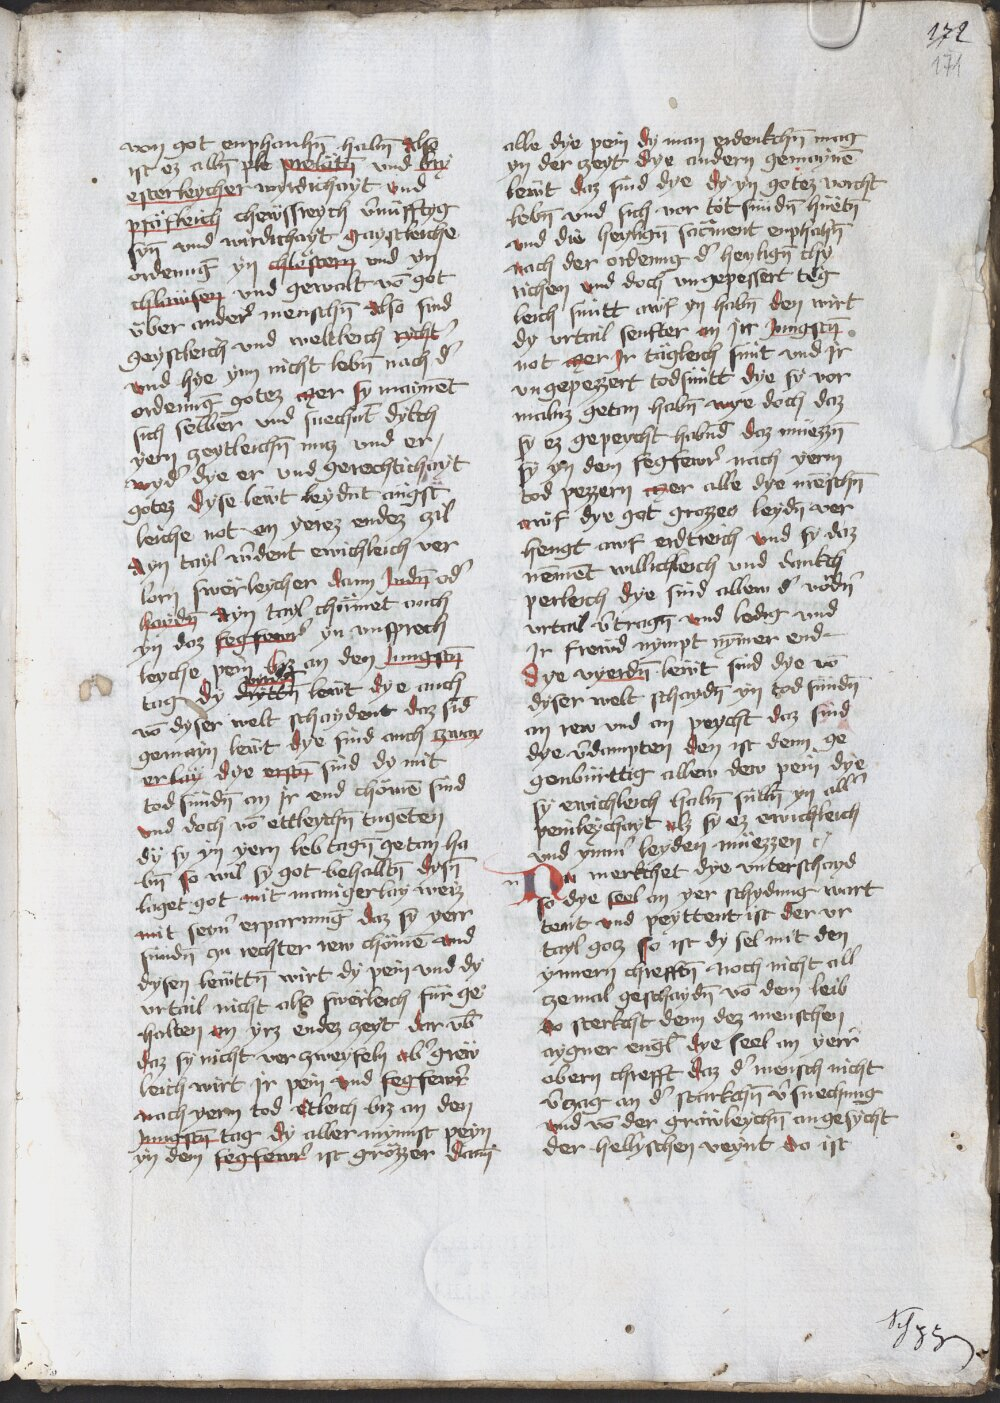 172
171
von got enphanhn̄ habn̄ also
ist ez alln̄ ple prelätn̄ und lay
esterleycher wirdichayt und
pfäfleich chewssreych v̄nüfftyg
syn̄ und wirdichayt gaystleiche
ordenūg yn chlöstern und yn
chlawsen und gewalt vō got
über ander menschn̄ also sind
geystleich und weltleich
und hye ynn nicht lebn̄ nach d'
ordenūg gotez mer sy maynēt
sich selber und suechn̄t dytch
yern zeytleichn̄ nuz und er
wyd' dye er und gerechtichayt
gotez dyse lewt leydn̄t angst
leiche not an yerez endez zil
ayn tayl w̄dent ewichleich ver
lorn swërleycher dann Judn̄ od'
haydn̄ ayn tayl chümet auch
yn daz fegfewr yn unsprech
leyche pein biz an den Jungstn̄
tag dy drittn̄ lewt dye auch
vō dyser welt schaydent daz sīd
gemayn lewt dye sind auch zway
erlay dye erstn̄ sind dy mit
tod sündn̄ an ir end chömē sind
und doch vō ettleychn̄ tugēten
dy sy yn yern lebtagn̄ getan ha
bn̄ so wil sy got behalltn̄ dysn̄
laget got mit manigerlay weiz
mit seyn' erparmūg daz sy yerr
sündn̄ zu rechter rew chömē und
dysen lewttn̄ wirt dy pein und dy
urtail nicht also swërleich für ge
halten an yrz endez zeyt dar ūb
daz sy nicht verzweyfeln ab' gräw
leich wirt ir pein und fegfewr̄
nach yerm tod etleich biz an den
Jungstn̄ tag dy aller mynnst peyn
yn dem fegfewr ist grözzer dann
alle dye pein dy man erdenkchn̄ mag
yn der zeyt dye andern gemaynē
lewt daz sind dye dy yn gotez vorcht
lebn̄ und sich vor tot sündn̄ hüetn̄
und die heylign̄ sacment enphahn̄
nach der ordenūg d' heylign̄ chr̄
richen und doch ungepessert teg
leich sünt auf yn habn̄ den wirt
dy urtail senfter an irr Jungstn̄
not mer ir tägleich sünt und ir
ungepezzert todsünt dye sy vor
malz getan habn̄ wye doch daz
sy ez gepeycht habnd daz müezzn̄
sy yn dem fegfewr nach yerm
tod pezzern mer alle dye meschn̄
auf dye got grozzes leydn̄ ver
hengt auf erdtreich und sy daz
nemēt willichleich und dankch
perleich dye sind allem d' vōdn̄
urtail v̄tragn̄ und ledig und
ir frewd nympt nymer end
Dye vyerdn̄ lewt sind dye vō
dyser welt schaydn̄ yn tod sündn̄
an rew und an peycht daz sind
dye v̄dampten den ist denn ge
genbürttig allew dew pein dye
sy ewichleich habn̄ sülln̄ yn all'
peinleychayt alz sy ez ewichleich
und ymm' leyden müezzen
n Nu merkchet dye unterschayd
so dye seel an yer schydūng wart
tent und peyttent ist der ur
tayl gotz so ist dy sel mit den
ynnern chrefftn̄ noch nicht all
zemal geschaydn̄ vō dem leib
do sterkcht denn dez menschen
aygner engl dye seel an yerr
obern chrefft daz d' mensch nicht
v̄zag an d' starkchn̄ v̄suechūng
und vō der gräwleychn̄ angesycht
der hellyschen veynt do ist